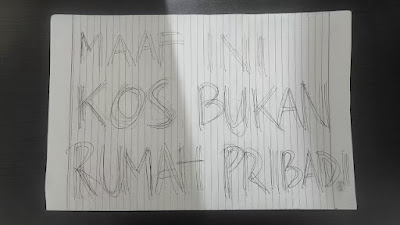 MAAF INI
KOS BUKAN
RUMAH PRIBADI